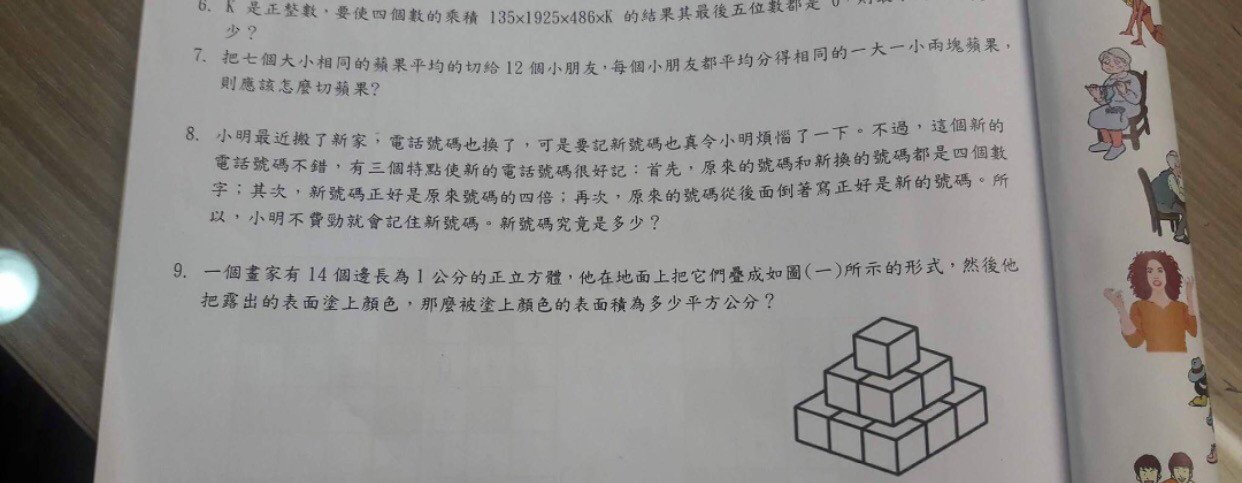 6. K 是正整數，要使四個數的乘積 135×1925×486×K 的結果其最後五位數都是
少？
7. 把七個大小相同的蘋果平均的切給 12 個小朋友，每個小朋友都平均分得相同的一大一小兩塊蘋果，
則應該怎麼切蘋果?
8. 小明最近搬了新家，電話號碼也換了，可是要記新號碼也真令小明煩惱了一下。不過，這個新的
電話號碼不錯，有三個特點使新的電話號碼很好記：首先，原來的號碼和新換的號碼都是四個數
字；其次，新號碼正好是原來號碼的四倍；再次，原來的號碼從後面倒著寫正好是新的號碼。所
以，小明不費勁就會記住新號碼。新號碼究竟是多少？
9. 一個畫家有 14 個邊長為 1 公分的正立方體，他在地面上把它們疊成如圖(一)所示的形式，然後他
把露出的表面塗上顏色，那麼被塗上顏色的表面積為多少平方公分？